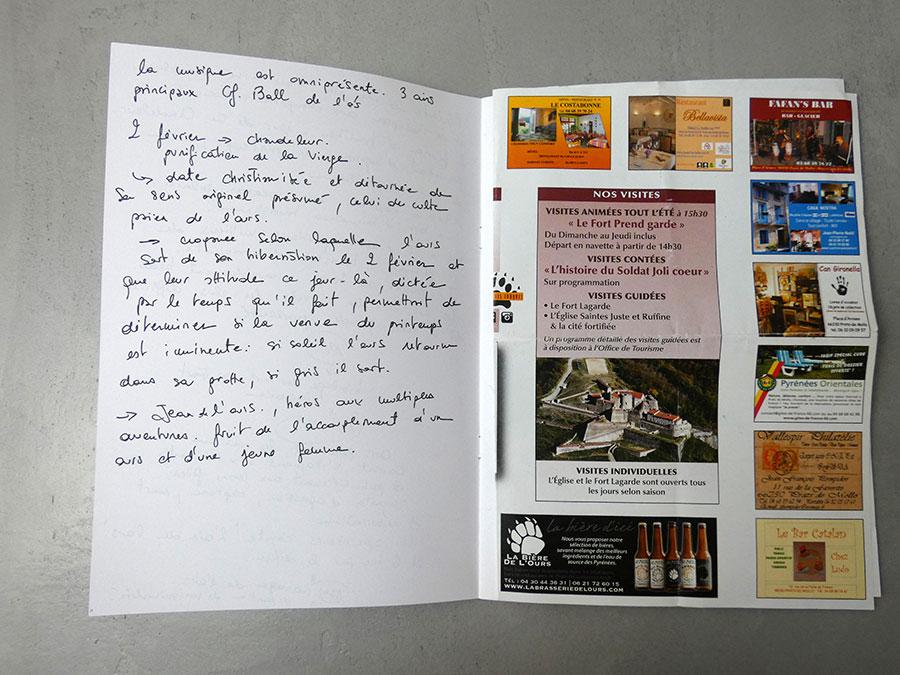 la musique est omniprésente. 3 airs
principaux Cf. Ball de l'ós
2 février → chandeleur.
purification de la Vierge.
↳ date christianisée et détournée de
son sens originel présumé, celui du culte
païen de l'ours.
→ croyance selon laquelle l'ours
sort de son hibernation le 2 février et
que leur attitude ce jour-là, dictée
par le temps qu'il fait, permettrait de
déterminer si la venue du printemps
est imminente: si soleil l'ours retourne
dans sa grotte, si gris il sort.
→ Jean de l'ours, héros aux multiples
aventures. fruit de l'accouplement d'un
ours et d'une jeune femme.
LE COSTABONNE
Restaurant
Bellavista
FAFAN'S BAR
BAR - GLACIER
CASA NOSTRA
Can Gironella
Pyrénées Orientales
Vallespir Philatélie
Jean François Pompidor
Le Bar Catalan
Chez
Ludo
NOS VISITES
VISITES ANIMÉES TOUT L'ÉTÉ à 15h30
« Le Fort Prend garde »
Du Dimanche au Jeudi inclus
Départ en navette à partir de 14h30
VISITES CONTÉES
« L'histoire du Soldat Joli coeur »
Sur programmation
VISITES GUIDÉES
• Le Fort Lagarde
• L'Église Saintes Juste et Ruffine
& la cité fortifiée
Un programme détaillé des visites guidées est
à disposition à l'Office de Tourisme
VISITES INDIVIDUELLES
L'Église et le Fort Lagarde sont ouverts tous
les jours selon saison
LA BIÈRE
DE L'OURS
la bière d'ici
Nous vous proposer notre
sélection de bières,
savant mélange des meilleurs
ingrédients et de l'eau de
source des Pyrénées.
TÉL : 04 30 44 38 31 | 06 21 72 60 15
WWW.LABRASSERIEDELOURS.COM